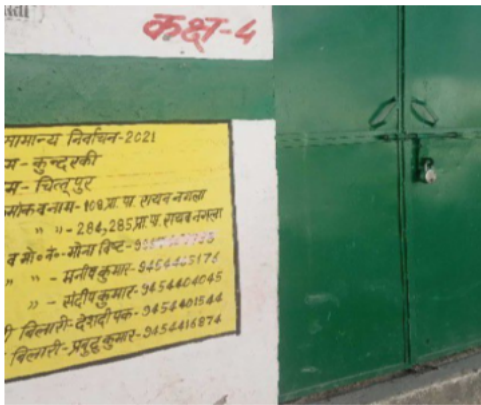 कक्ष-4
सामान्य निर्वाचन-2021
म-कुन्दरकी
म-चित्तूपुर
क व नाम-109,प्रा.पा. रायब नगला
" "-284,285 प्रा.पा. रायब नगला
व मो०नं०-मोना बिष्ट-9
" "-मनीष कुमार-9454465176
" "-संदीप कुमार-9454404045
बिलारी-देशदीपक-9454401544
बिलारी-प्रबुद्ध कुमार-9454416874